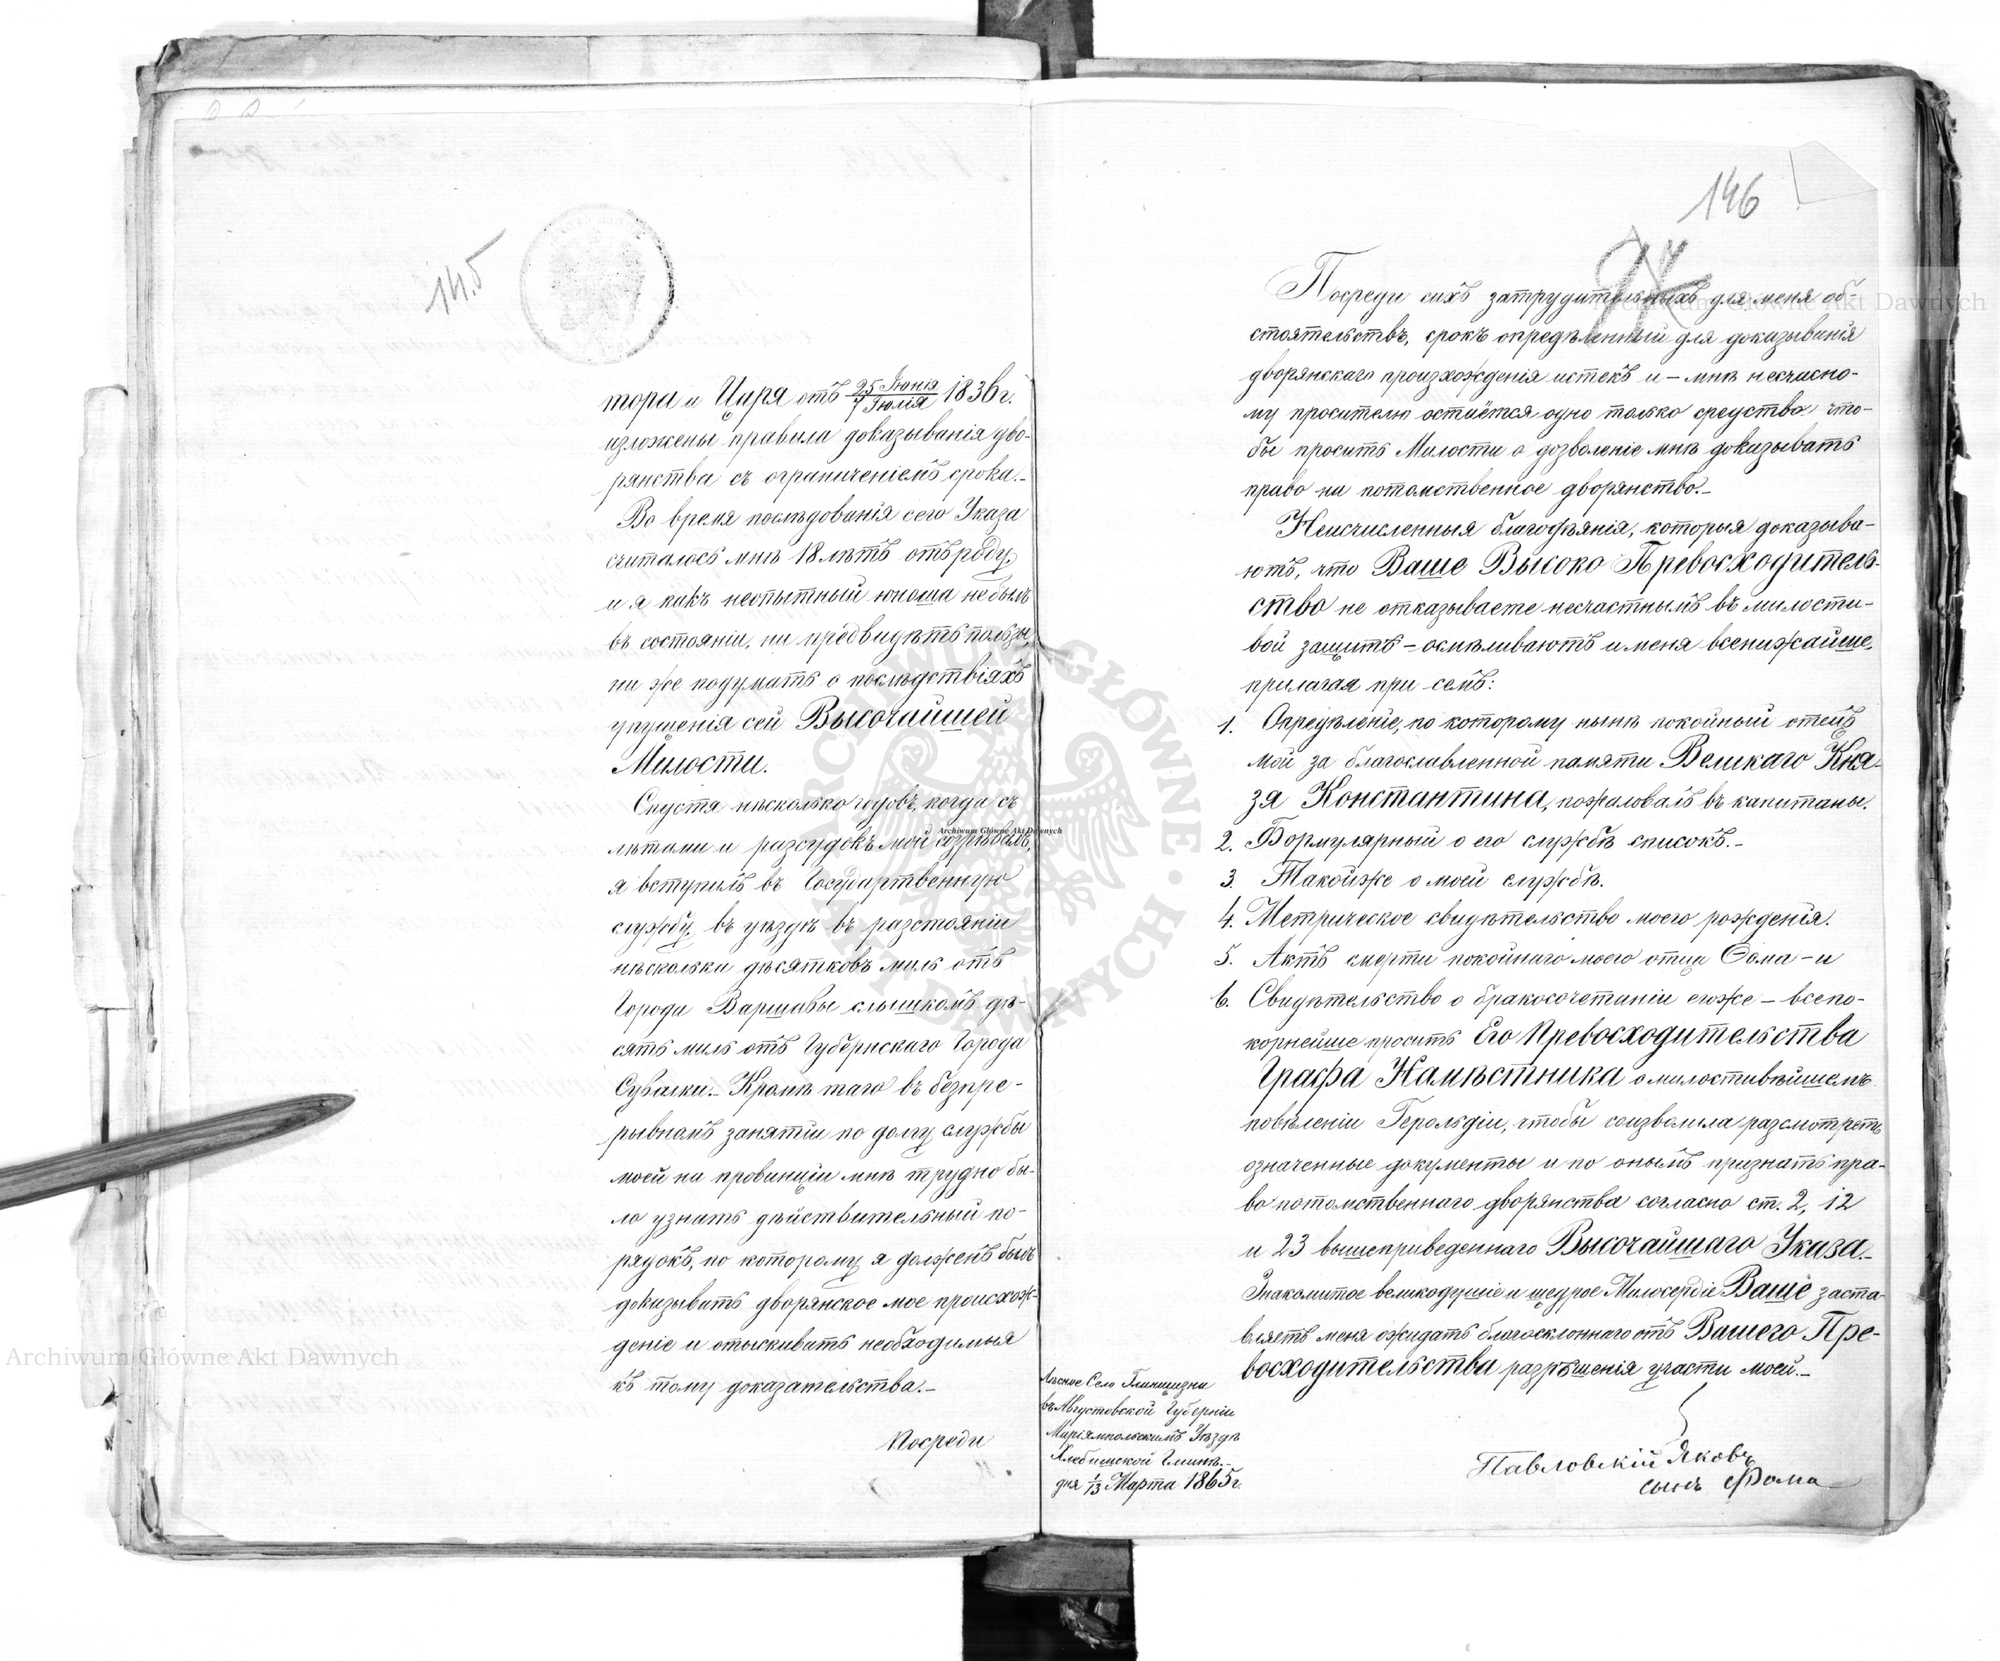 145
тора и Царя отъ 25 Іюня/7 Іюля 1836 г.
изложены правила доказыванія дво-
рянства съ ограниченіемъ срока.-
Во время послѣдованія сего Указа
считалось мнѣ 18 лѣтъ отъ роду,
и я какъ неопытный юноша не былъ
въ состояніи, ни предвидѣть пользы,
ни же подумать о послѣдствіяхъ
упущенія сей Высочайшей
Милости.
Спустя нѣсколько годовъ, когда съ
лѣтами и разсудокъ мой созрѣвалъ,
я вступилъ въ Государственную
службу, въ уѣздѣ въ разстояніи
нѣсколька дѣсятковъ миль отъ
Города Варшавы слышкомъ дѣ-
сять миль отъ Губернскаго Города
Сувалки.- Кромѣ таго въ безпре-
рывномъ занятіи по долгу службы
моей на провинціи мнѣ трудно бы-
ло узнать дѣйствительный по-
рядокъ, по которому я долженъ былъ
доказывать дворянское мое происхож-
деніе и отыскивать необходимыя
къ тому доказательства.-
Посреди
146
Посреди сихъ затрудительныхъ для меня об-
стоятельствъ, срокъ опредѣленный для доказыванія
дворянскаго произхожденія истекъ и - мнѣ несчасно-
му просителю остаётся одно только средство что-
бы просить Милости о дозволеніе мнѣ доказывать
право на потомственное дворянство.-
Неисчисленныя благодѣянія, которыя доказыва-
ютъ, что Ваше Высоко Превосходитель-
ство не отказываете несчастнымъ въ милости-
вой защитѣ - осмѣливаютъ и меня всенижайше,
прилагая при семъ:
1. Опредѣленіе, по которому нынѣ покойный отецъ
мой за благославленной памяти Великаго Кня-
зя Константина, пожаловалъ въ капитаны.
2. Формулярный о его службѣ списокъ.-
3. Такойже о моей службѣ.
4. Метрическое свидѣтельство моего рожденія.
5. Актъ смерти покойнаго моего отца Фома - и
6. Свидѣтельство о бракосочетаніи егоже - всепо-
корнейше просить Его Превосходительства
Графа Намѣстника о милостивѣйшемъ
повѣленіи Герольдіи, чтобы соизволила разсмотреть
означенные документы и по онымъ признать пра-
во потомственнаго дворянства согласно ст. 2, 12
и 23 вышеприведеннаго Высочайшаго Указа.-
Знакомитое великодушіе и щедрое Милосердіе Ваше заста-
вляетъ меня ожидать благосклоннаго отъ Вашего Пре-
восходительства разрѣшенія участи моей.-
Лѣсное Село
въ Августовской Губерніи
Маріямпольскимъ Уѣздѣ
Гминѣ.-
дня 1/13 Марта 1865 г.
Павловскій Яковъ
сынъ Фома
Archiwum Główne Akt Dawnych
Archiwum Główne Akt Dawnych
Archiwum Główne Akt Dawnych
ARCHIWUM GŁÓWNE AKT DAWNYCH